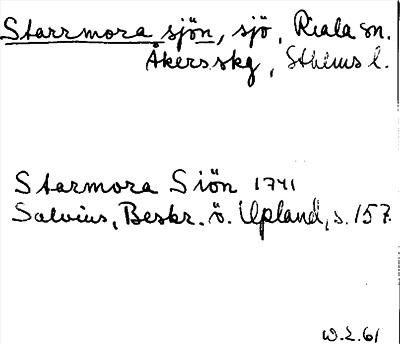 Starrmora sjön, sjö, Riala sn.
Åkersskg, Sthlms l.
Starmora Siön 1741
Salvius, Beskr. ö. Upland, s. 157.
W.L. 61